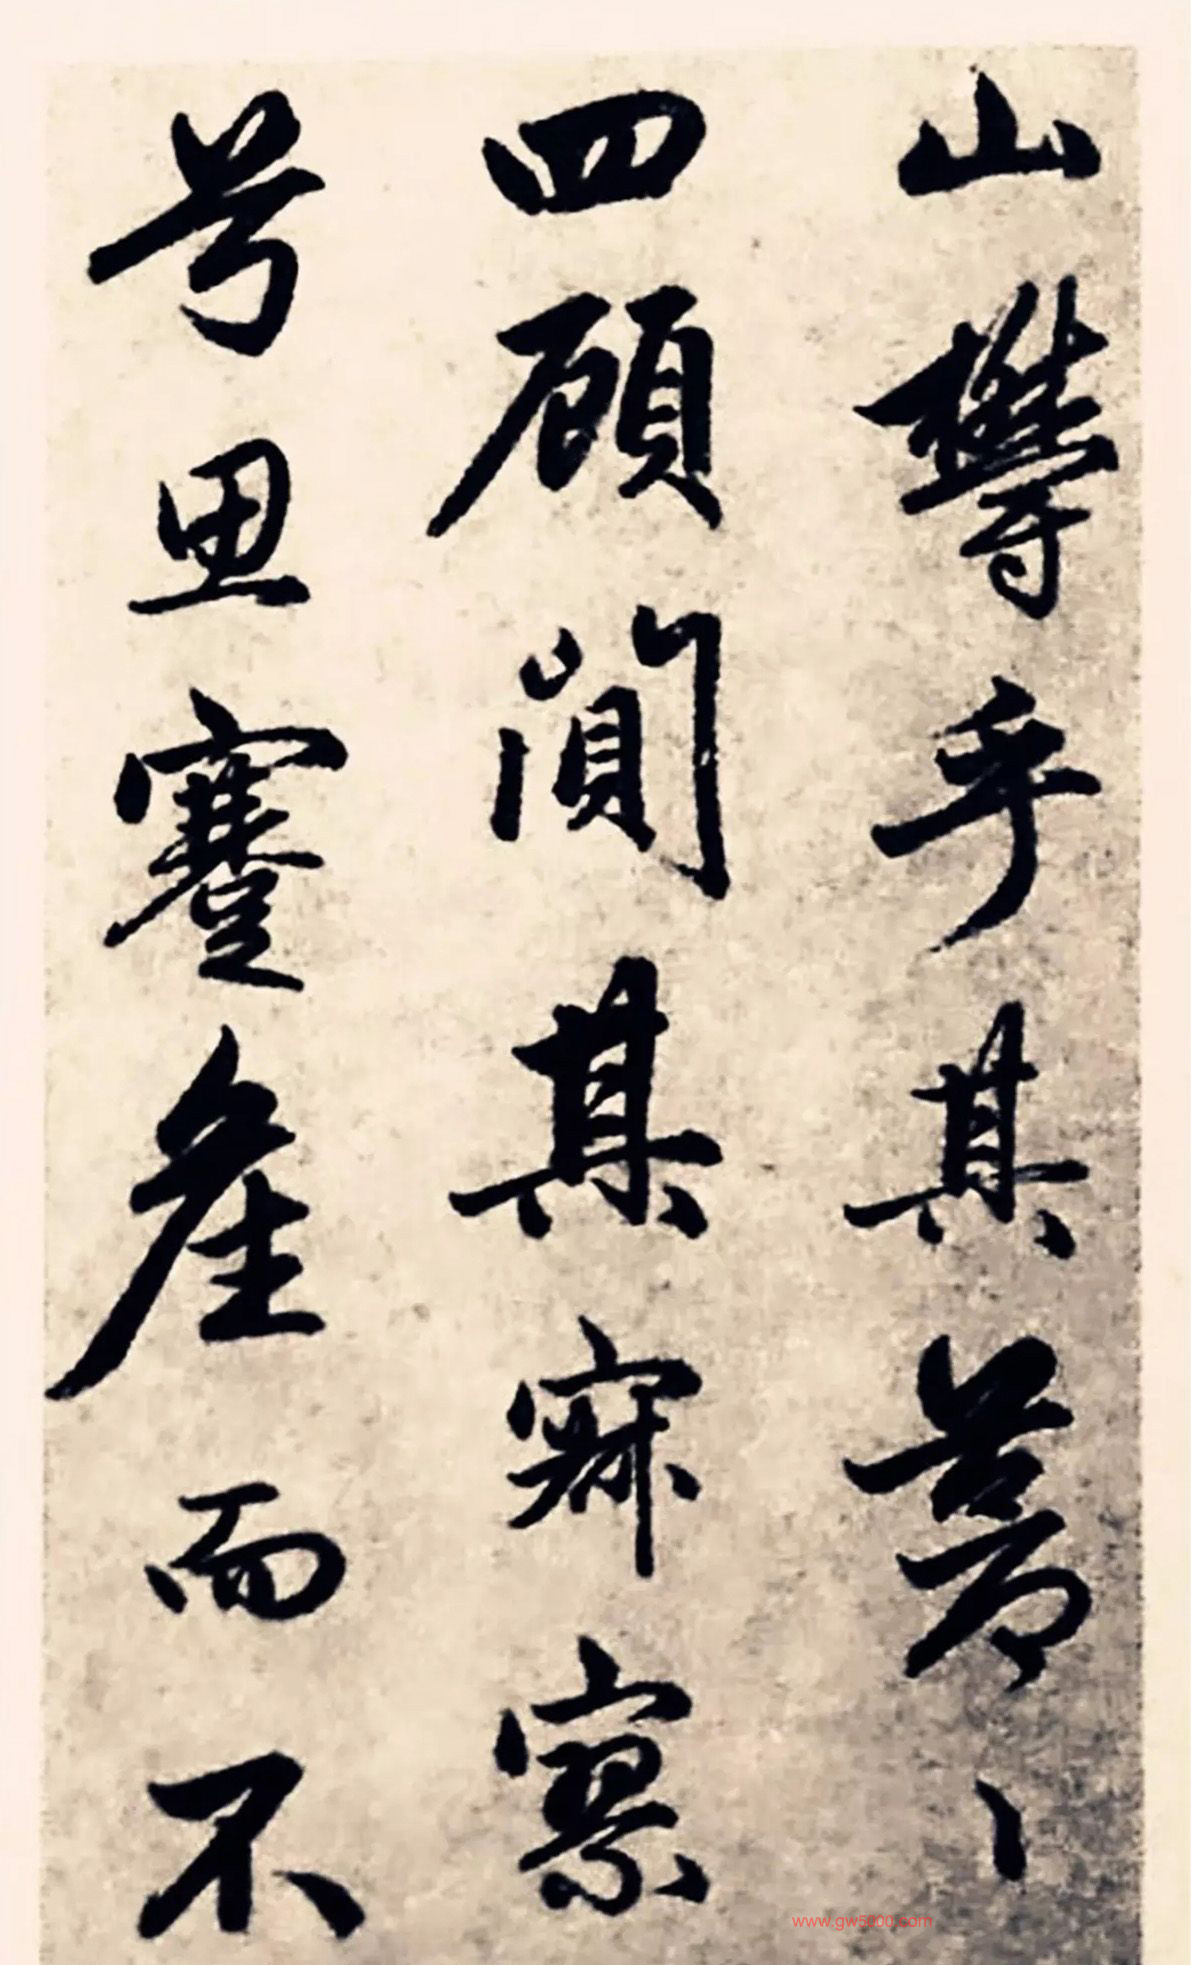 山欝乎其蒼〻
四顧闃其寂寥
兮思蹇產而不
www.gw5000.com